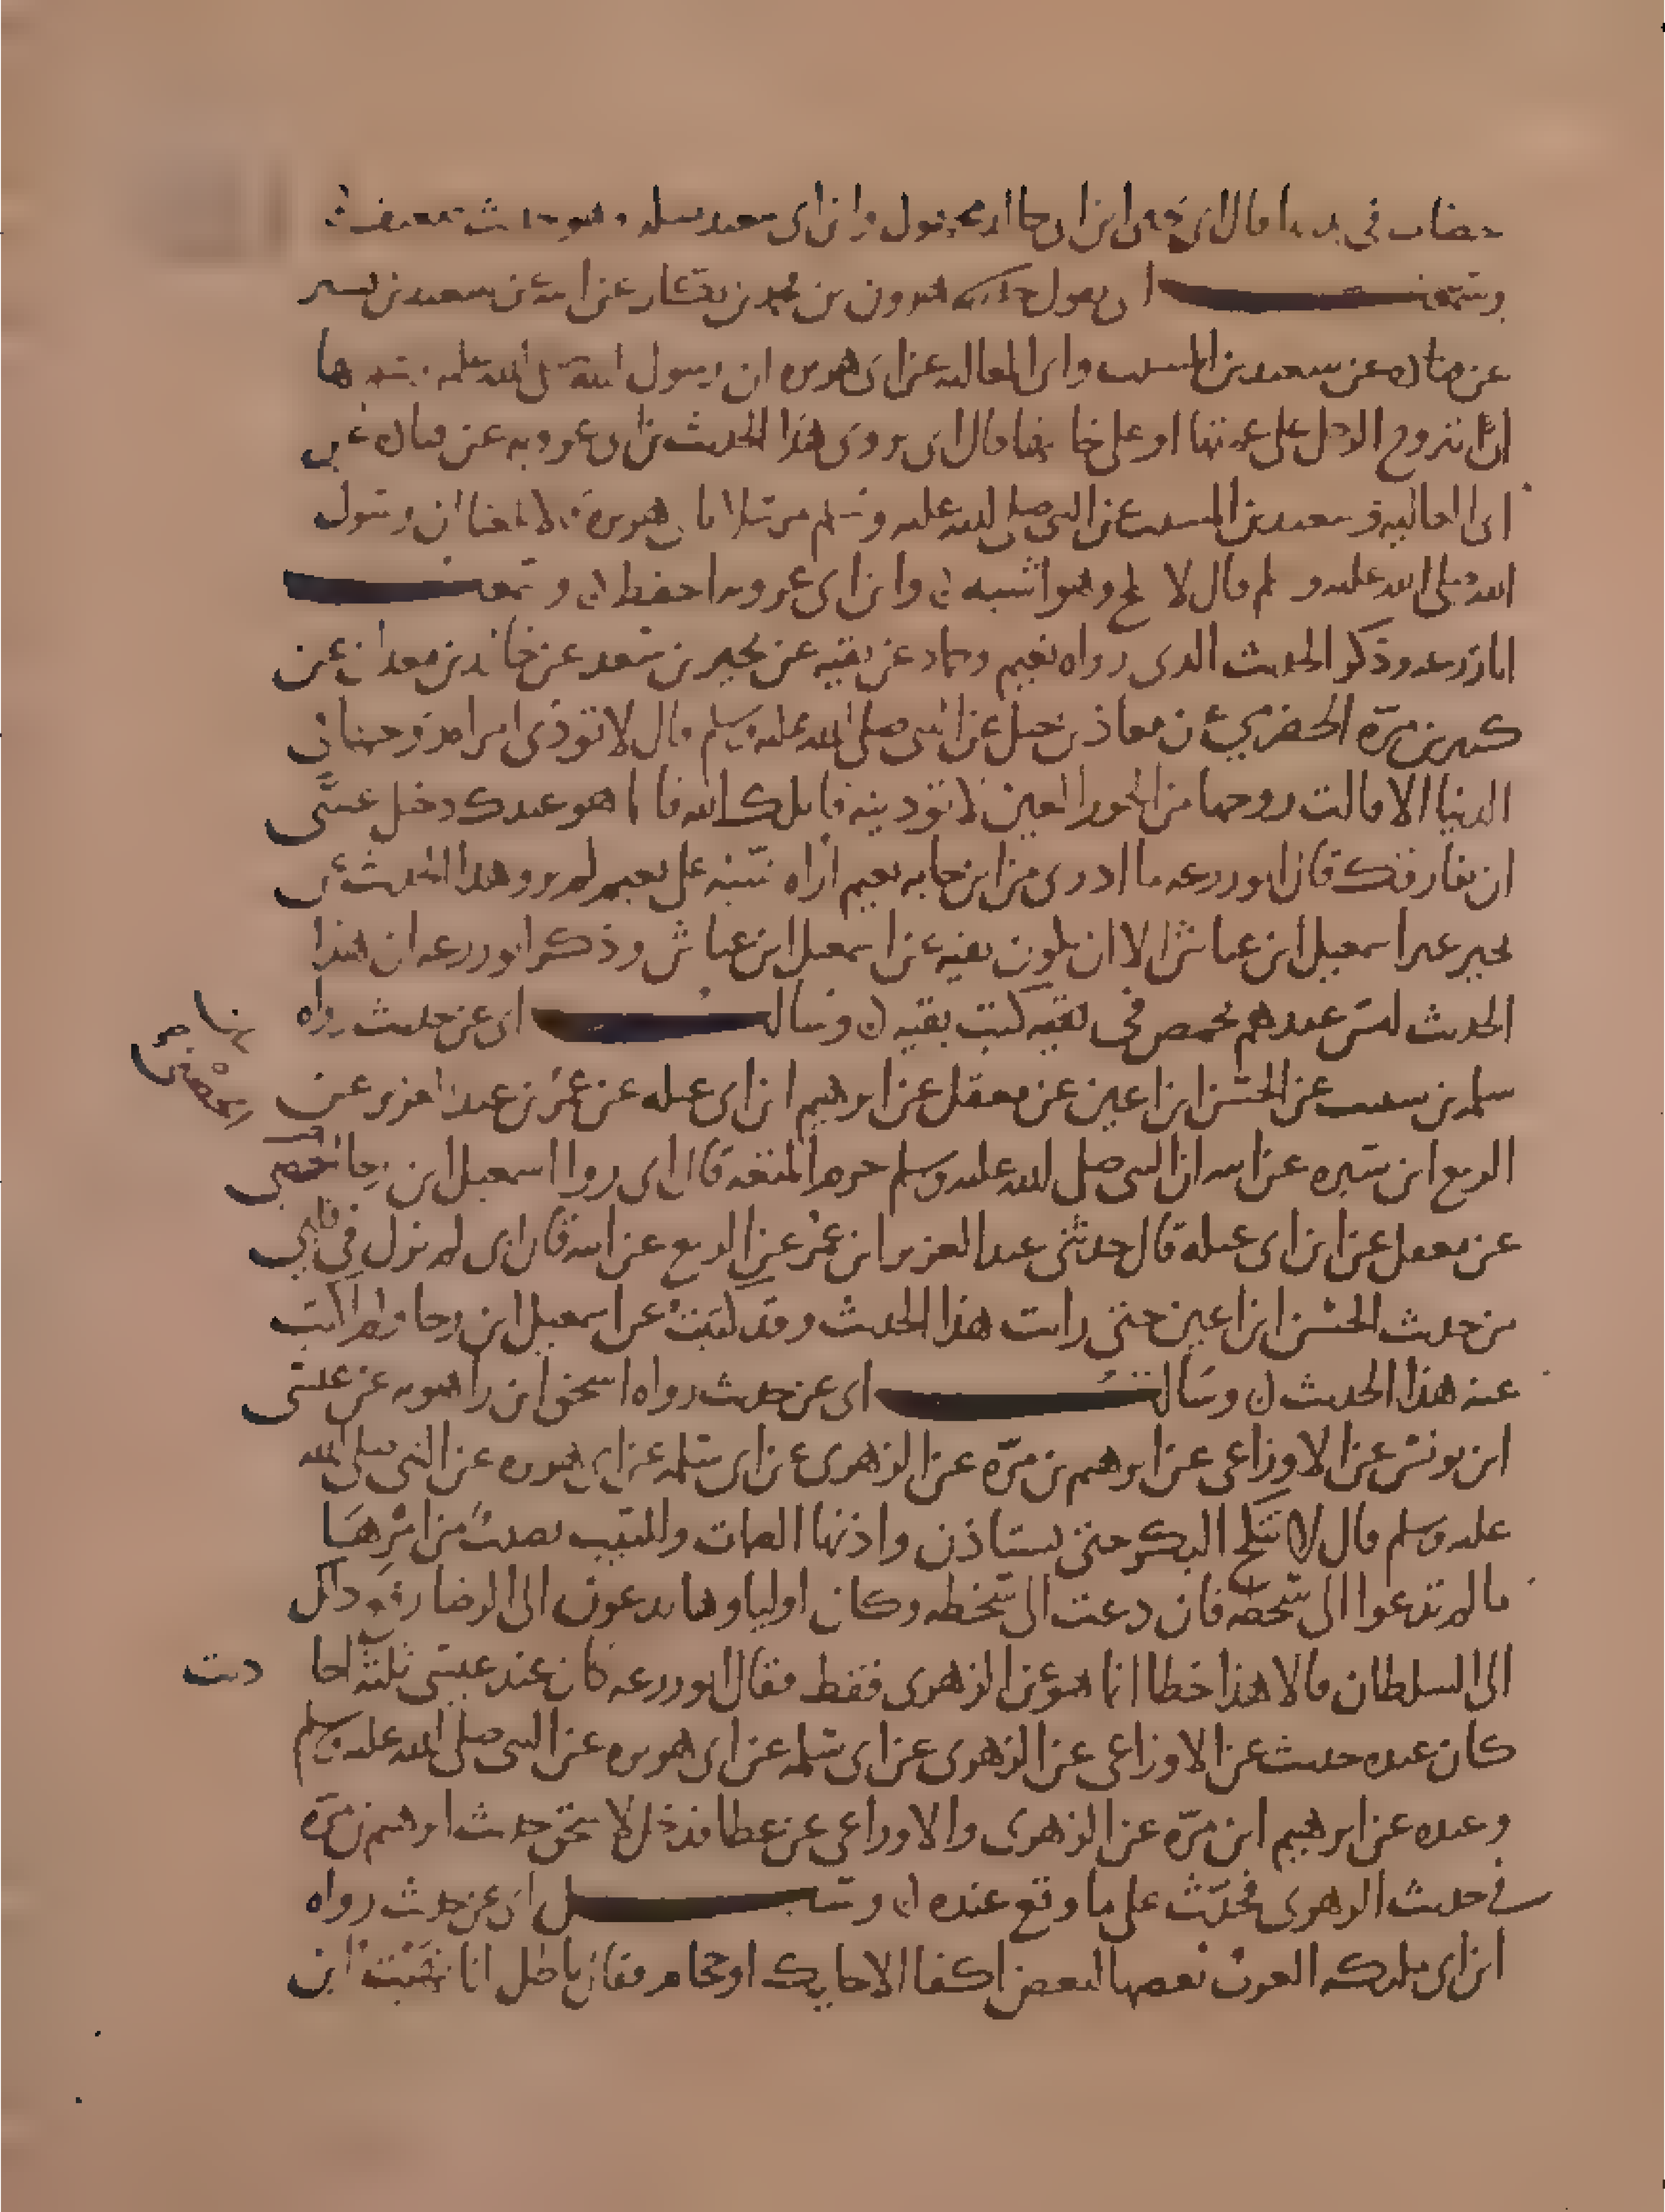 خضاب في يدها قال ابي يحيى ابن ابي حجاج مجهول وابن ابي سعيد مثله وهو حديث ضعيف
وسمعت ابي يقول حدثنا هرون بن محمد بن بكار عن ابيه عن سعيد بن بشير
عن قتاده عن سعيد بن المسيب وابي العاليه عن ابي هريره ان رسول الله صلى الله عليه
ان تزوج المراه على عمتها او على خالتها قال ابي يروى هذا الحديث بن ابي عروبه عن قتاده عن
ابي العاليه وسعيد بن المسيب عن النبي صلى الله عليه وسلم مرسلا ابا هريره قالا بلغنا ان رسول
الله صلى الله عليه وسلم قال لا وهو اشبه وابن ابي عروبه احفظ وسمعت
ابا زرعه وذكر الحديث الذي رواه نعيم وحماد عن بقيه عن بحير بن سعد عن خالد بن معدان عن
كثير بن مرّة الحضرمي عن معاذ بن جبل عن النبي صلى الله عليه وسلم قال لا توذي امراه زوجها في
الدنيا الا قالت زوجها من الحور العين لا توذيه قاتلك الله فانما هو عندك دخيل عسى
ان يفارقك قال ابو زرعه ما ادري من اين جا به نعيم اراه شبه على نعيم لم يرو هذا الحديث عن
بحير غير اسمعيل ابن عياش الا ان يكون بقيه عن اسمعيل ابن عياش وذكر ابو زرعه ان هذا
الحديث ليس عندهم بحمص في بقيه كتب بقيه وسالت ابي عن حديث رواه
سلمه بن شبيب عن الحسن ابن اعين عن معقل عن ابرهيم ابن ابي عبله عن عمر بن عبد العزيز عن
الربيع ابن سبره عن ابيه ان النبي صلى الله عليه وسلم حرم المتعه قال ابي رواا اسمعيل ابن رجا
الحصني
عن معقل عن ابن ابي عبله قال حدثني عبد العزيز ابن عمر عن الربيع عن ابيه قال ابي لم يزل في قلبي
من حديث الحسن ابن اعين حتى رايت هذا الحديث وقد كتبت عن اسمعيل ابن رجا ولم اكتب
عنه هذا الحديث وسالت ابي عن حديث رواه اسحق ابن راهويه عن عيسى
ابن يونس عن الاوزاعي عن ابرهيم بن مرّة عن الزهري عن ابي سلمه عن ابي هريره عن النبي صلى الله
عليه وسلم قال لا تنكح البكر حتى تستاذن واذنها الصمات وللثيب نصيب من امرها
ما لم تدعوا الى سخطه فان دعت الى سخطه وكان اولياوها يدعون الى الرضا رفع ذلك
الى السلطان قالا هذا خطا انما هو عن الزهري فقط فقال ابو زرعه كان عند عيسى ثلثة احا ديث
كان عنده حديث عن الاوزاعي عن الزهري عن ابي سلمه عن ابي هريره عن النبي صلى الله عليه وسلم
وعنده عن ابرهيم ابن مرّه عن الزهري والاوزاعي عن عطا فدخل لاسحق حديث ابرهيم بن مرّه
في حديث الزهري فحدّث على ما وقع عنده وسئل ابي عن حديث رواه
ابن ابي مليكه العرب بعضها لبعض اكفا الا حايك او حجام فقال باطل انا نهيت ابن